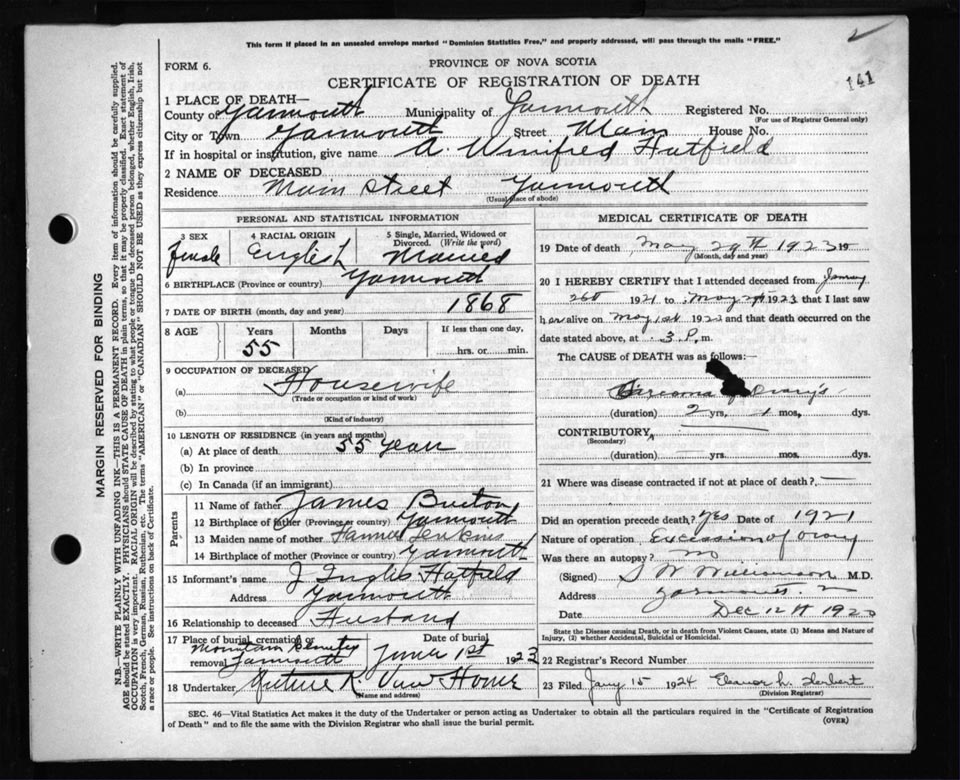 This form if placed in an unsealed envelope marked "Dominion Statistics Free," and properly addressed, will pass through the mails "FREE."
141
FORM 6.
PROVINCE OF NOVA SCOTIA
CERTIFICATE OF REGISTRATION OF DEATH
MARGIN RESERVED FOR BINDING
N.B.—WRITE PLAINLY WITH UNFADING INK—THIS IS A PERMANENT RECORD. Every item of information should be carefully supplied.
AGE should be stated EXACTLY. PHYSICIANS should STATE CAUSE OF DEATH in plain terms, so that it may be properly classified. Exact statement of
OCCUPATION is very important. RACIAL ORIGIN will be described by stating to what people or tongue the deceased person belonged, whether English, Irish,
Scotch, French, German, Russian, Ruthenian, etc. The terms "AMERICAN" or "CANADIAN" SHOULD NOT BE USED as they express citizenship but not
a race or people. See instructions on back of Certificate.
1 PLACE OF DEATH—
County of Yarmouth Municipality of Yarmouth Registered No.
(For use of Registrar General only)
City or Town Yarmouth Street Main House No.
If in hospital or institution, give name A. Winifred Hatfield
2 NAME OF DECEASED
Residence Main Street Yarmouth
(Usual place of abode)
PERSONAL AND STATISTICAL INFORMATION
3 SEX Female
4 RACIAL ORIGIN English
5 Single, Married, Widowed or Divorced. (Write the word) Married
6 BIRTHPLACE (Province or country) Yarmouth
7 DATE OF BIRTH (month, day and year) 1868
8 AGE Years Months Days If less than one day,
55 hrs. or min.
9 OCCUPATION OF DECEASED
(a) Housewife
(Trade or occupation or kind of work)
(b)
(Kind of industry)
10 LENGTH OF RESIDENCE (in years and months)
(a) At place of death 55 years
(b) In province
(c) In Canada (if an immigrant)
Parents
11 Name of father James Burton
12 Birthplace of father (Province or country) Yarmouth
13 Maiden name of mother Jenkins
14 Birthplace of mother (Province or country) Yarmouth
15 Informant's name J Inglis Hatfield
Address Yarmouth
16 Relationship to deceased Husband
17 Place of burial, cremation or removal Mountain Cemetery Yarmouth
Date of burial June 1st 1923
18 Undertaker View Home
(Name and address)
MEDICAL CERTIFICATE OF DEATH
19 Date of death May 29th 1923 19
(Month, day and year)
20 I HEREBY CERTIFY that I attended deceased from
1921 to May 1923 that I last saw
her alive on May 1st 1923 and that death occurred on the
date stated above, at 3 P. m.
The CAUSE of DEATH was as follows:—
(duration) 2 yrs. 1 mos. dys.
CONTRIBUTORY
(Secondary)
(duration) yrs. mos. dys.
21 Where was disease contracted if not at place of death?
Did an operation precede death? yes Date of 1921
Nature of operation of ovary
Was there an autopsy? no
(Signed) S W Williamson M.D.
Address Yarmouth
Date Dec 12th 1923
State the Disease causing Death, or in death from Violent Causes, state (1) Means and Nature of
Injury, (2) whether Accidental, Suicidal or Homicidal.
22 Registrar's Record Number
23 Filed Jany 15 1924 Eleanor L. Herbert
(Division Registrar)
SEC. 46—Vital Statistics Act makes it the duty of the Undertaker or person acting as Undertaker to obtain all the particulars required in the "Certificate of Registration
of Death" and to file the same with the Division Registrar who shall issue the burial permit.
(OVER)